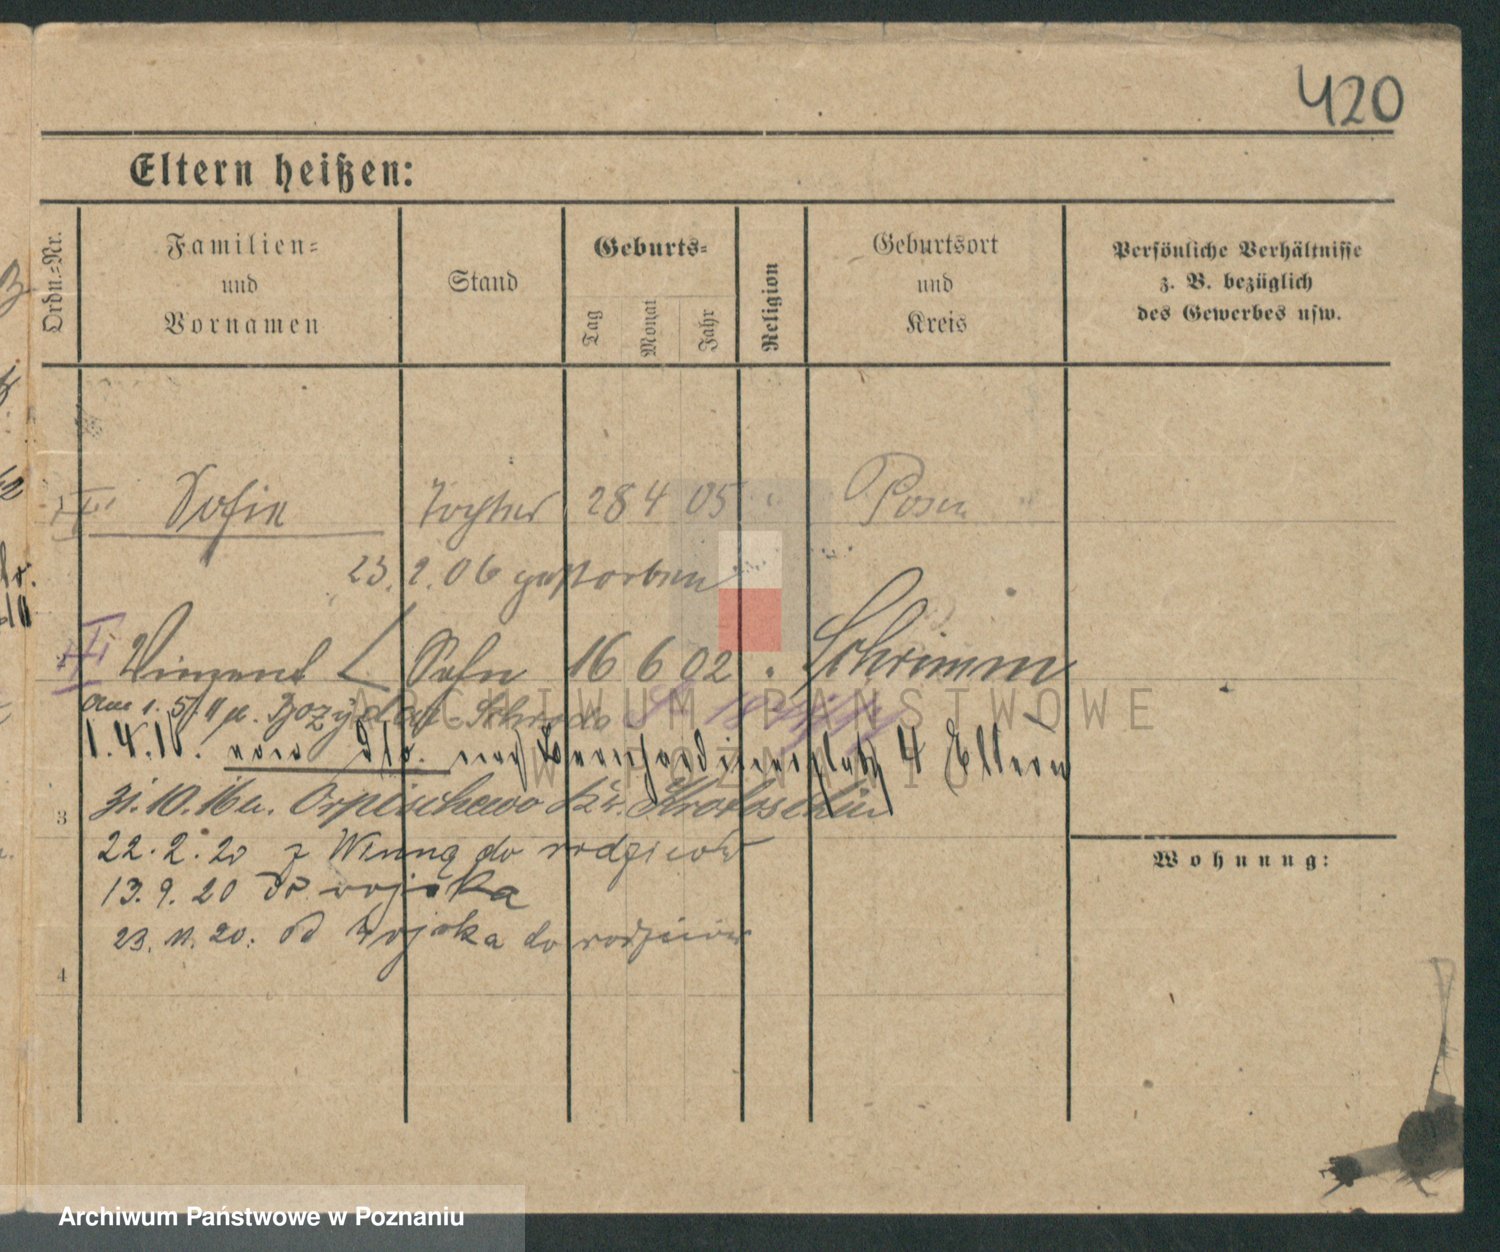 420
Eltern heißen:
Ordn.-Nr.
Familien- und Vornamen
Stand
Geburts-
Tag
Monat
Jahr
Religion
Geburtsort und Kreis
Persönliche Verhältnisse z. B. bezüglich des Gewerbes usw.
Sofie Tochter 28 4 05 Posen
23. 2. 06 gestorben
Vinzent Sohn 16 6 02 Schrimm
Schroda
1.4.1 . nach Bernhardinerplatz 4 Eltern
3
31.10.16 n. Orpischewo Kr. Krotoschin
22.2.20 z do rodziców
13.9.20 do wojska
23.11.20. od wojska do rodziców
4
Wohnung:
ARCHIWUM PAŃSTWOWE
W POZNANIU
Archiwum Państwowe w Poznaniu